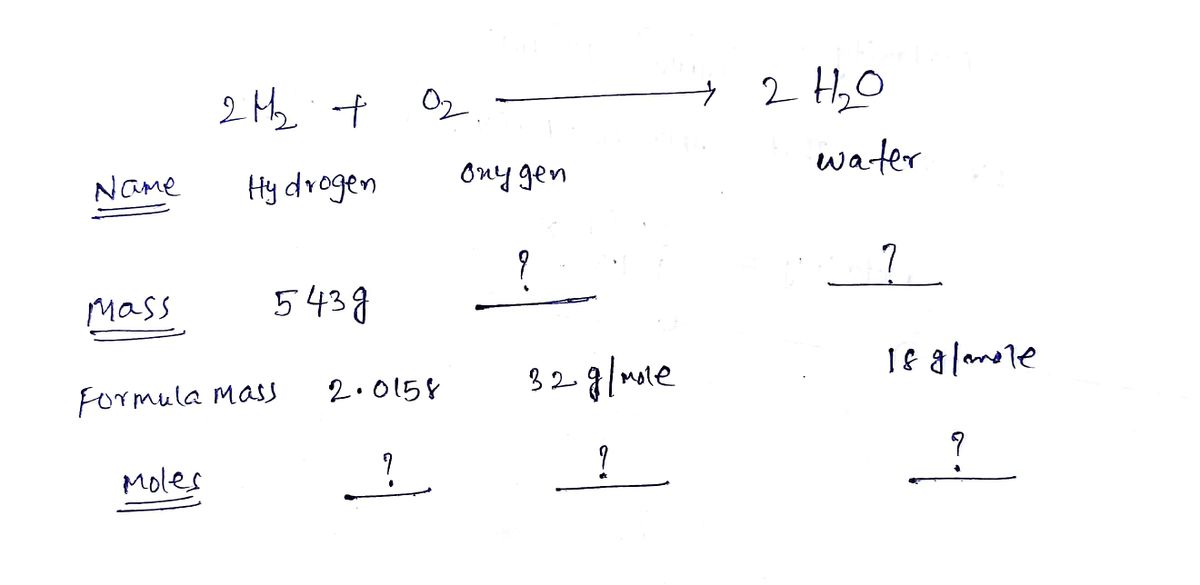 2 H₂ + O₂ ⟶ 2 H₂O
Name Hydrogen oxygen water
Mass 543g ? ?
Formula Mass 2.0158 32 g/mole 18 g/mole
Moles ? ? ?